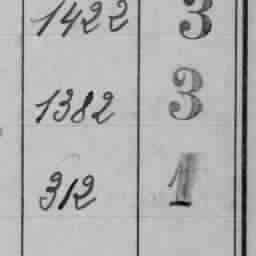 1422 3
1382 3
312 1